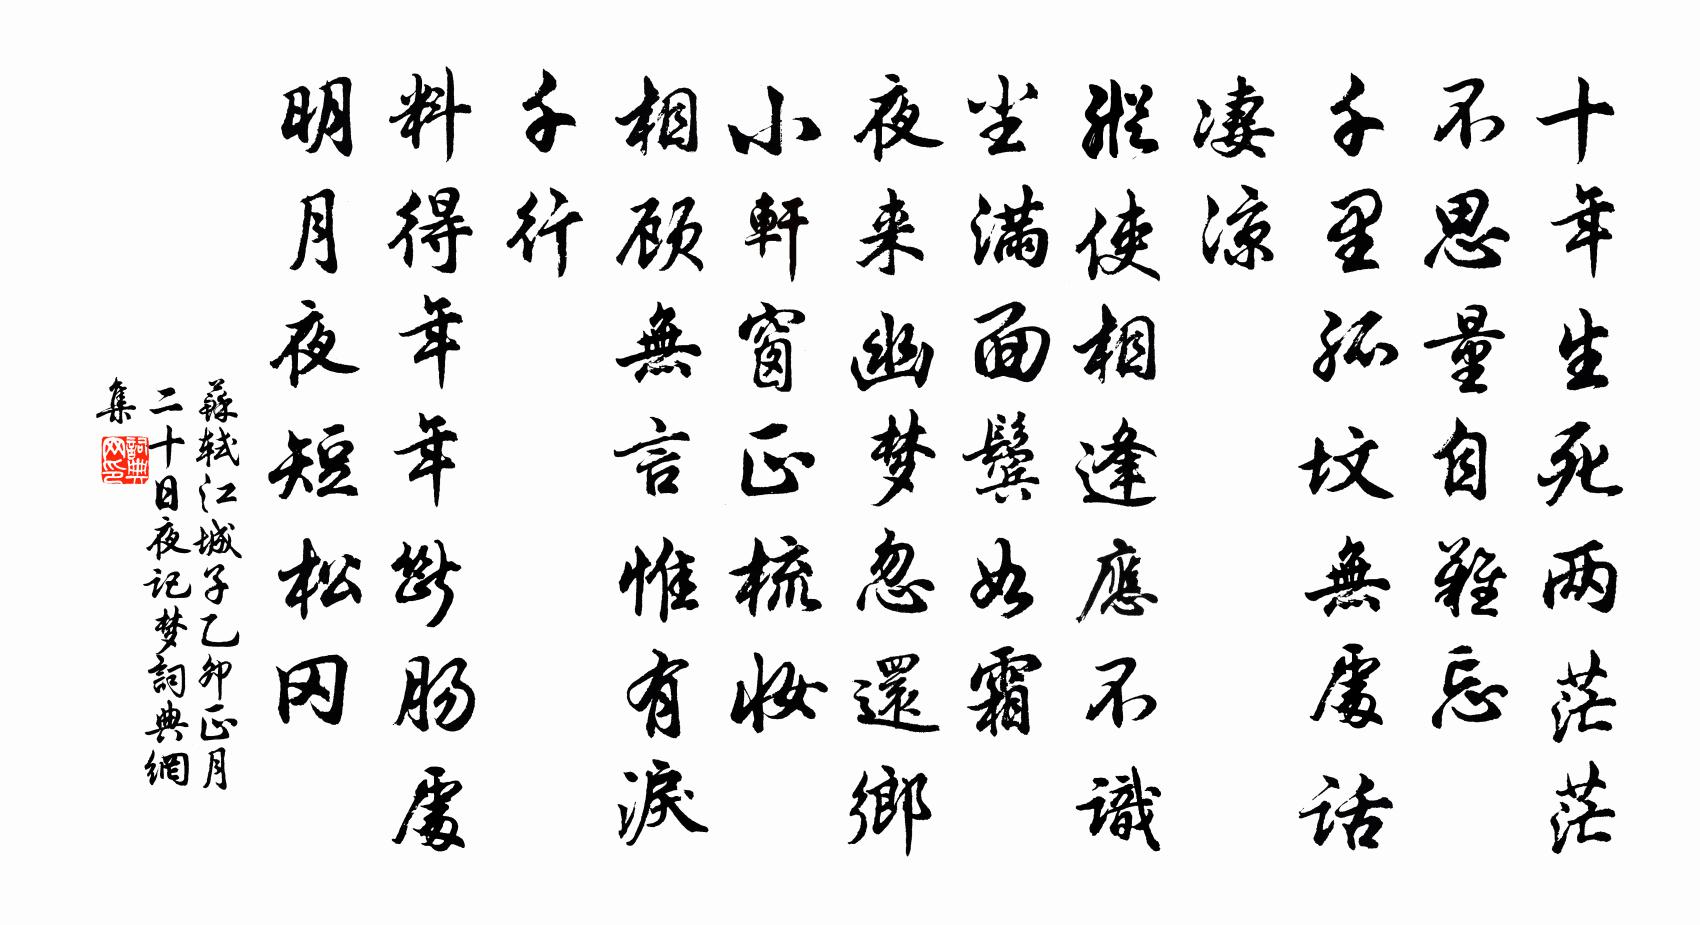 十年生死两茫茫
不思量自難忘
千里孤坟無處話
凄涼
縱使相逢應不識
尘滿面鬓如霜
夜来幽梦忽還鄉
小軒窗正梳妆
相顾無言惟有淚
千行
料得年年断肠處
明月夜短松冈
蘇轼江城子乙卯正月
二十日夜记梦詞典網
集
詞典網印